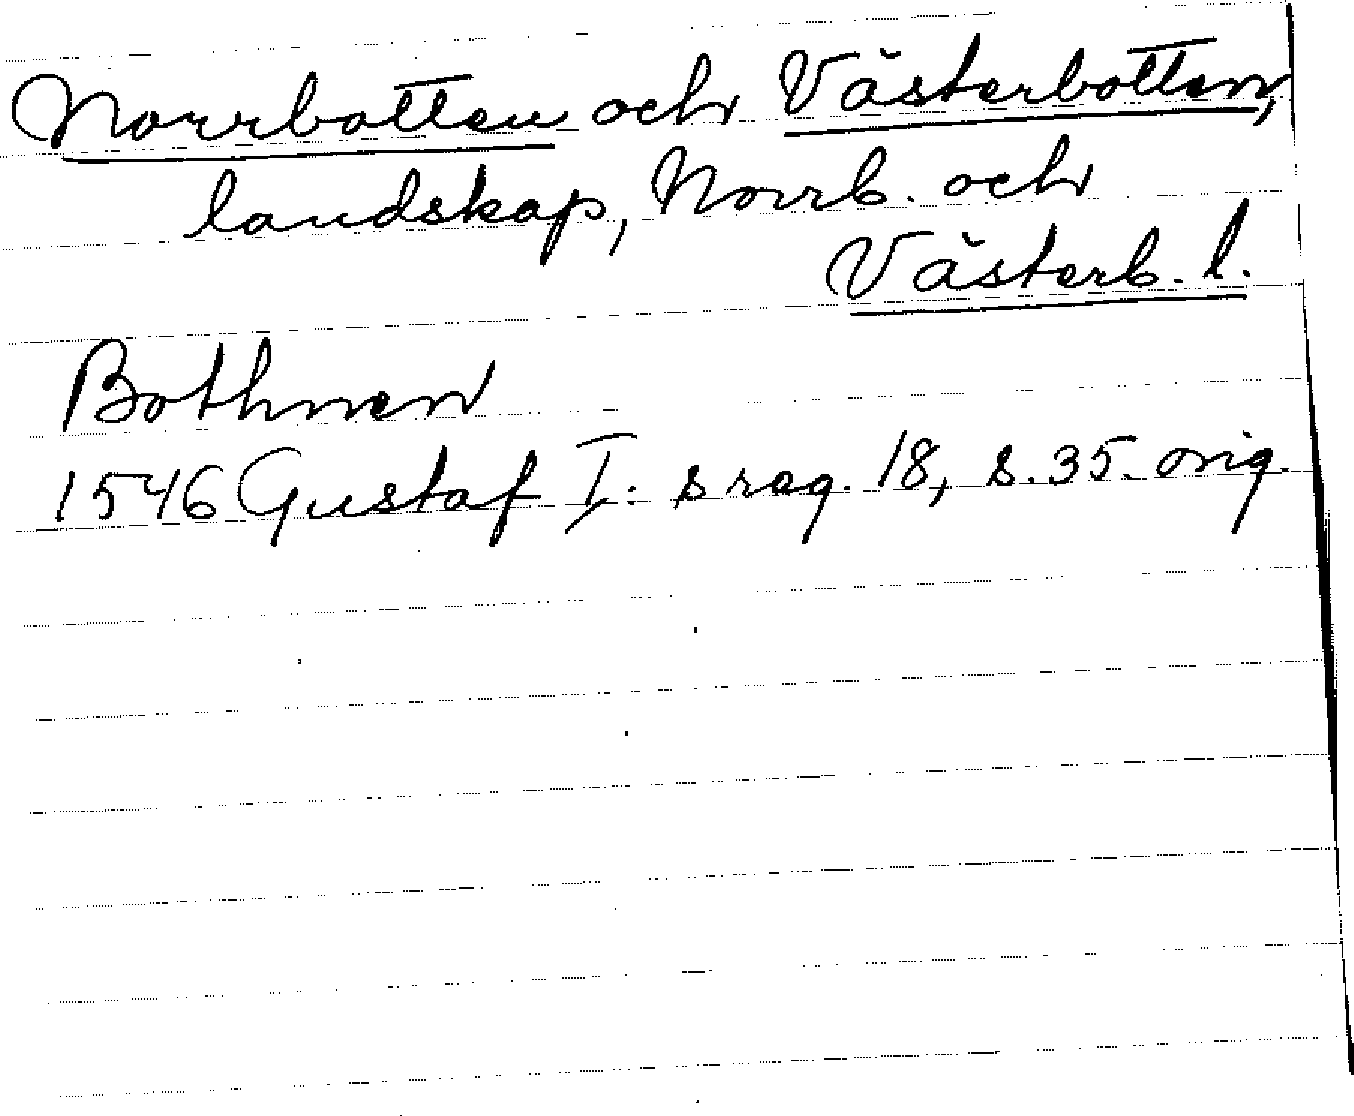 Norrbotten och Västerbotten,
landskap, Norrb. och
Västerb. l.
Bothnen
1546 Gustaf I: s reg. 18, s. 35. orig.